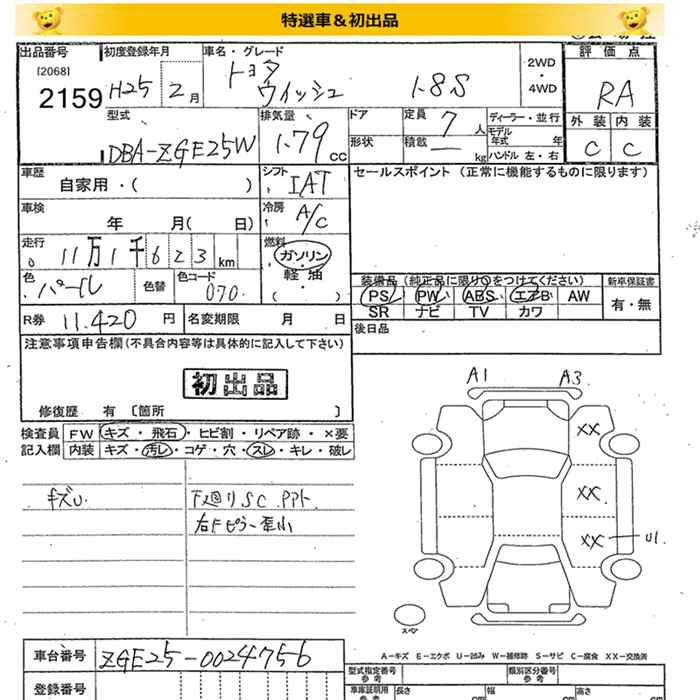 特選車＆初出品
出品番号 初度登録年月 車名・グレード 評価点
[2068] H25 2月 トヨタ 1.8S 2WD・4WD RA
2159 ウイッシュ
外装 内装
C C
型式 排気量 ドア 定員 7人 ディーラー・並行
DBA-ZGE25W 1.79cc 形状 積載 ー kg モデル年式 年 ハンドル 左・右
車歴 シフト セールスポイント（正常に機能するものに限ります）
自家用・( ) IAT
車検 冷房
年 月( 日) A/C
走行 燃料
11万1千623km ガソリン
色 色替 色コード 軽油
パール 070 ( )
装備品（純正品に限り○をつけてください） 新車保証書
PS PW ABS エアB AW 有・無
SR ナビ TV カワ
R券 11.420円 名変期限 月 日 後日品
注意事項申告欄(不具合内容等は具体的に記入して下さい)
初出品
修復歴 有 〔箇所 〕
検査員 FW キズ・飛石・ヒビ割・リペア跡・×要
記入欄 内装 キズ・汚レ・コゲ・穴・スレ・キレ・破レ
キズU 下廻りSC.PPト
右Fピラー歪小
A1 A3
XX
XX
XX U1
スペア
A-キズ E-エクボ U-凹み W-補修跡 S-サビ C-腐食 XX-交換済
車台番号 ZGE25-0024756
型式指定番号 参考 類別区分番号 参考
登録番号 車庫証明用 参考 長さ cm 幅 cm 高さ cm